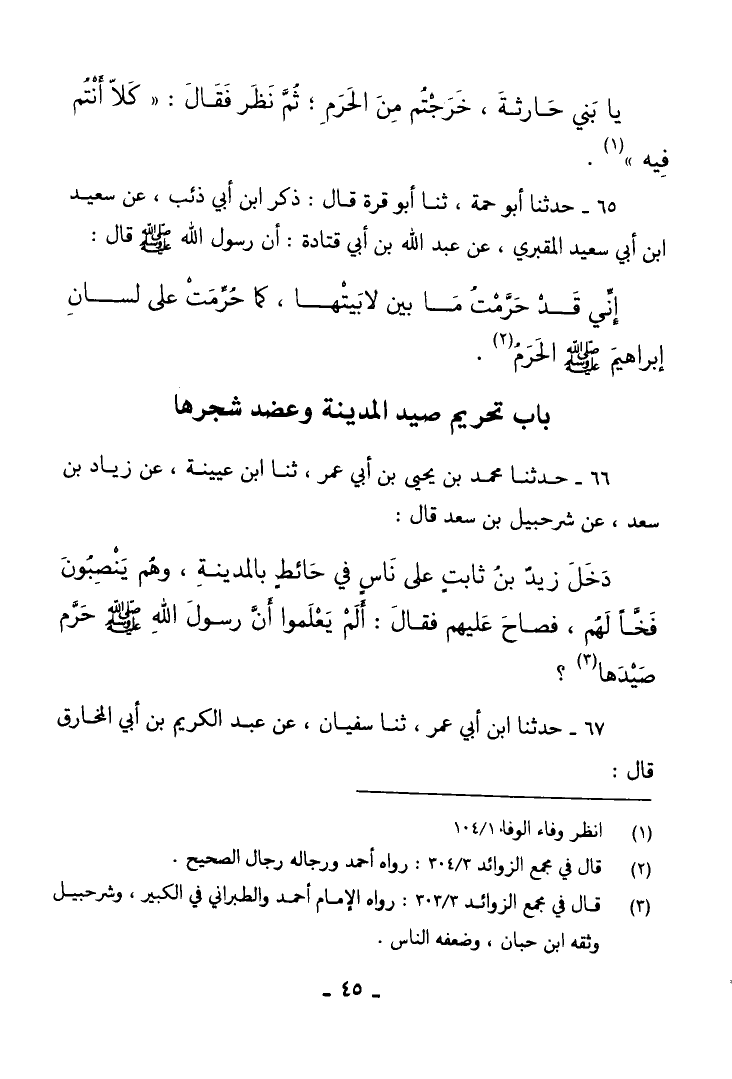 يا بَني حَارثةَ ، خَرَجْتُم مِنَ الحَرَمِ ؛ ثُمَّ نَظَر فَقَالَ : « كَلاّ أَنْتُم
فِيه »(١) .
٦٥ ـ حدثنا أبو حمة ، ثنا أبو قرة قال : ذكر ابن أبي ذئب ، عن سعيد
ابن أبي سعيد المقبري ، عن عبد الله بن أبي قتادة : أن رسول الله ﷺ قال :
إنِّي قَدْ حَرَّمْتُ مَا بين لابَيتْها ، كما حُرِّمَتْ على لسانِ
إبراهيمَ ﷺ الحَرَمُ(٢) .
باب تحريم صيد المدينة وعضد شجرها
٦٦ ـ حدثنا محمد بن يحيى بن أبي عمر ، ثنا ابن عيينة ، عن زياد بن
سعد ، عن شرحبيل بن سعد قال :
دَخَلَ زيدُ بنُ ثابتٍ على نَاسٍ في حَائطٍ بالمدينةِ ، وهُم يَنْصِبُونَ
فَخَّاً لَهُم ، فصاحَ عَليهم فقالَ : أَلَمْ يَعْلَموا أَنَّ رسولَ اللهِ ﷺ حَرَّم
صَيْدَها(٣) ؟
٦٧ ـ حدثنا ابن أبي عمر ، ثنا سفيان ، عن عبد الكريم بن أبي المخارق
قال :
(١) انظر وفاء الوفا ١٠٤/١
(٢) قال في مجمع الزوائد ٣٠٤/٣ : رواه أحمد ورجاله رجال الصحيح .
(٣) قال في مجمع الزوائد ٣٠٣/٣ : رواه الإمام أحمد والطبراني في الكبير ، وشرحبيل
وثقه ابن حبان ، وضعفه الناس .
ـ ٤٥ ـ